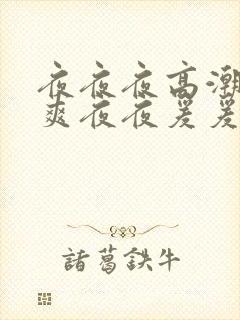 夜夜夜高潮
爽夜夜爰爰
諸葛鉄牛